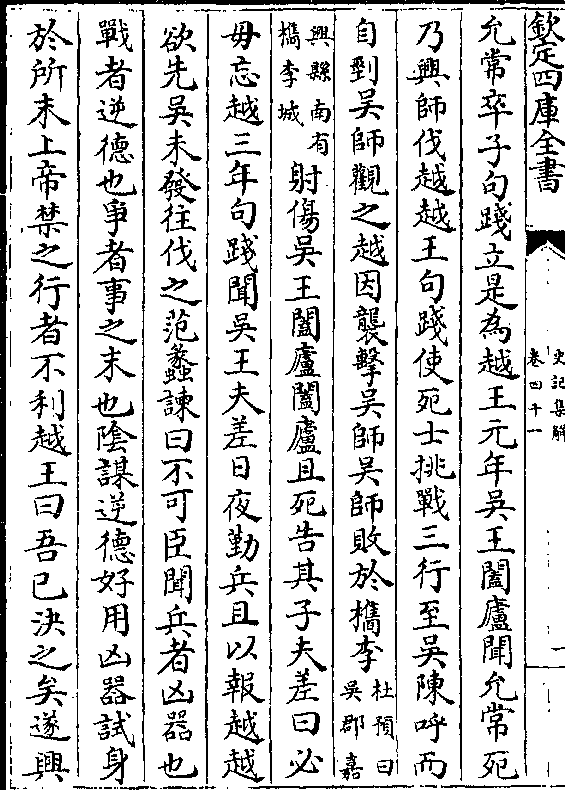 欽定四庫全書
史記集解
卷四十一
一
允常卒子句踐立是為越王元年吳王闔廬聞允常死
乃興師伐越越王句踐使死士挑戰三行至吳陳呼而
自剄吳師觀之越因襲擊吳師吳師敗於檇李
杜預曰吳郡嘉
興縣南有檇李城
射傷吳王闔廬闔廬且死告其子夫差曰必
毋忘越三年句踐聞吳王夫差日夜勤兵且以報越越
欲先吳未發往伐之范蠡諫曰不可臣聞兵者凶器也
戰者逆德也爭者事之末也陰謀逆德好用凶器試身
於所末上帝禁之行者不利越王曰吾已決之矣遂興